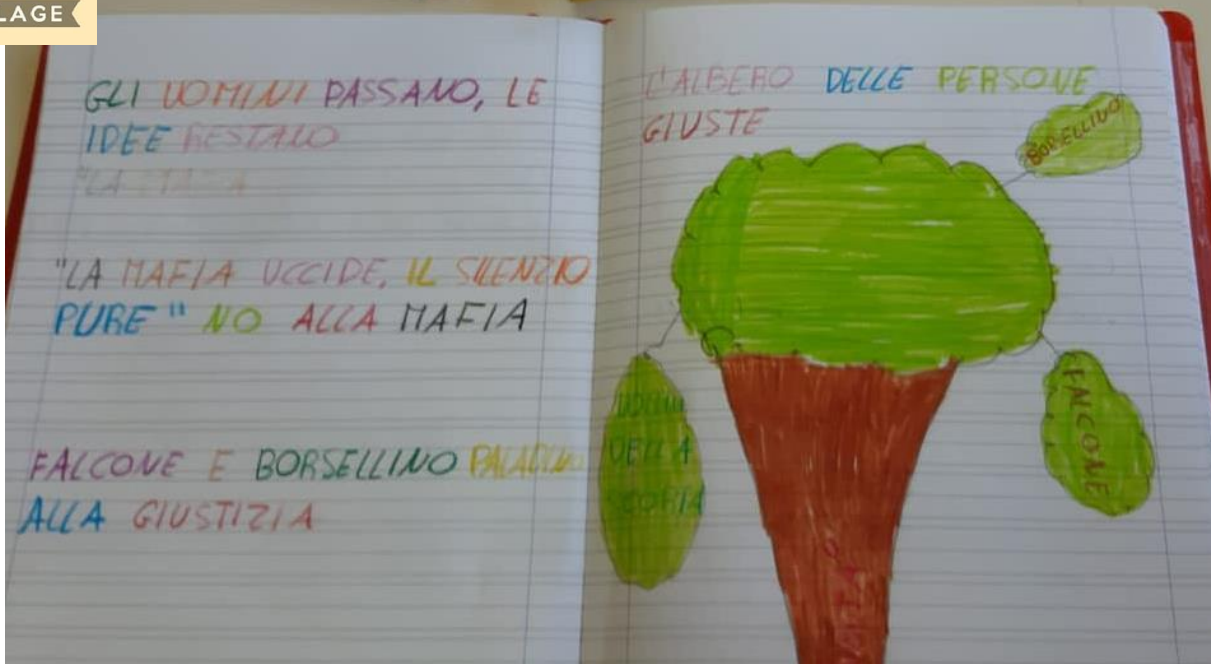 LAGE
GLI UOMINI PASSANO, LE
IDEE RESTANO
"LA
"LA MAFIA UCCIDE, IL SILENZIO
PURE" NO ALLA MAFIA
FALCONE E BORSELLINO
ALLA GIUSTIZIA
L'ALBERO DELLE PERSONE
GIUSTE
BORSELLINO
FALCONE
UOMINI
DELLA
SCORTA